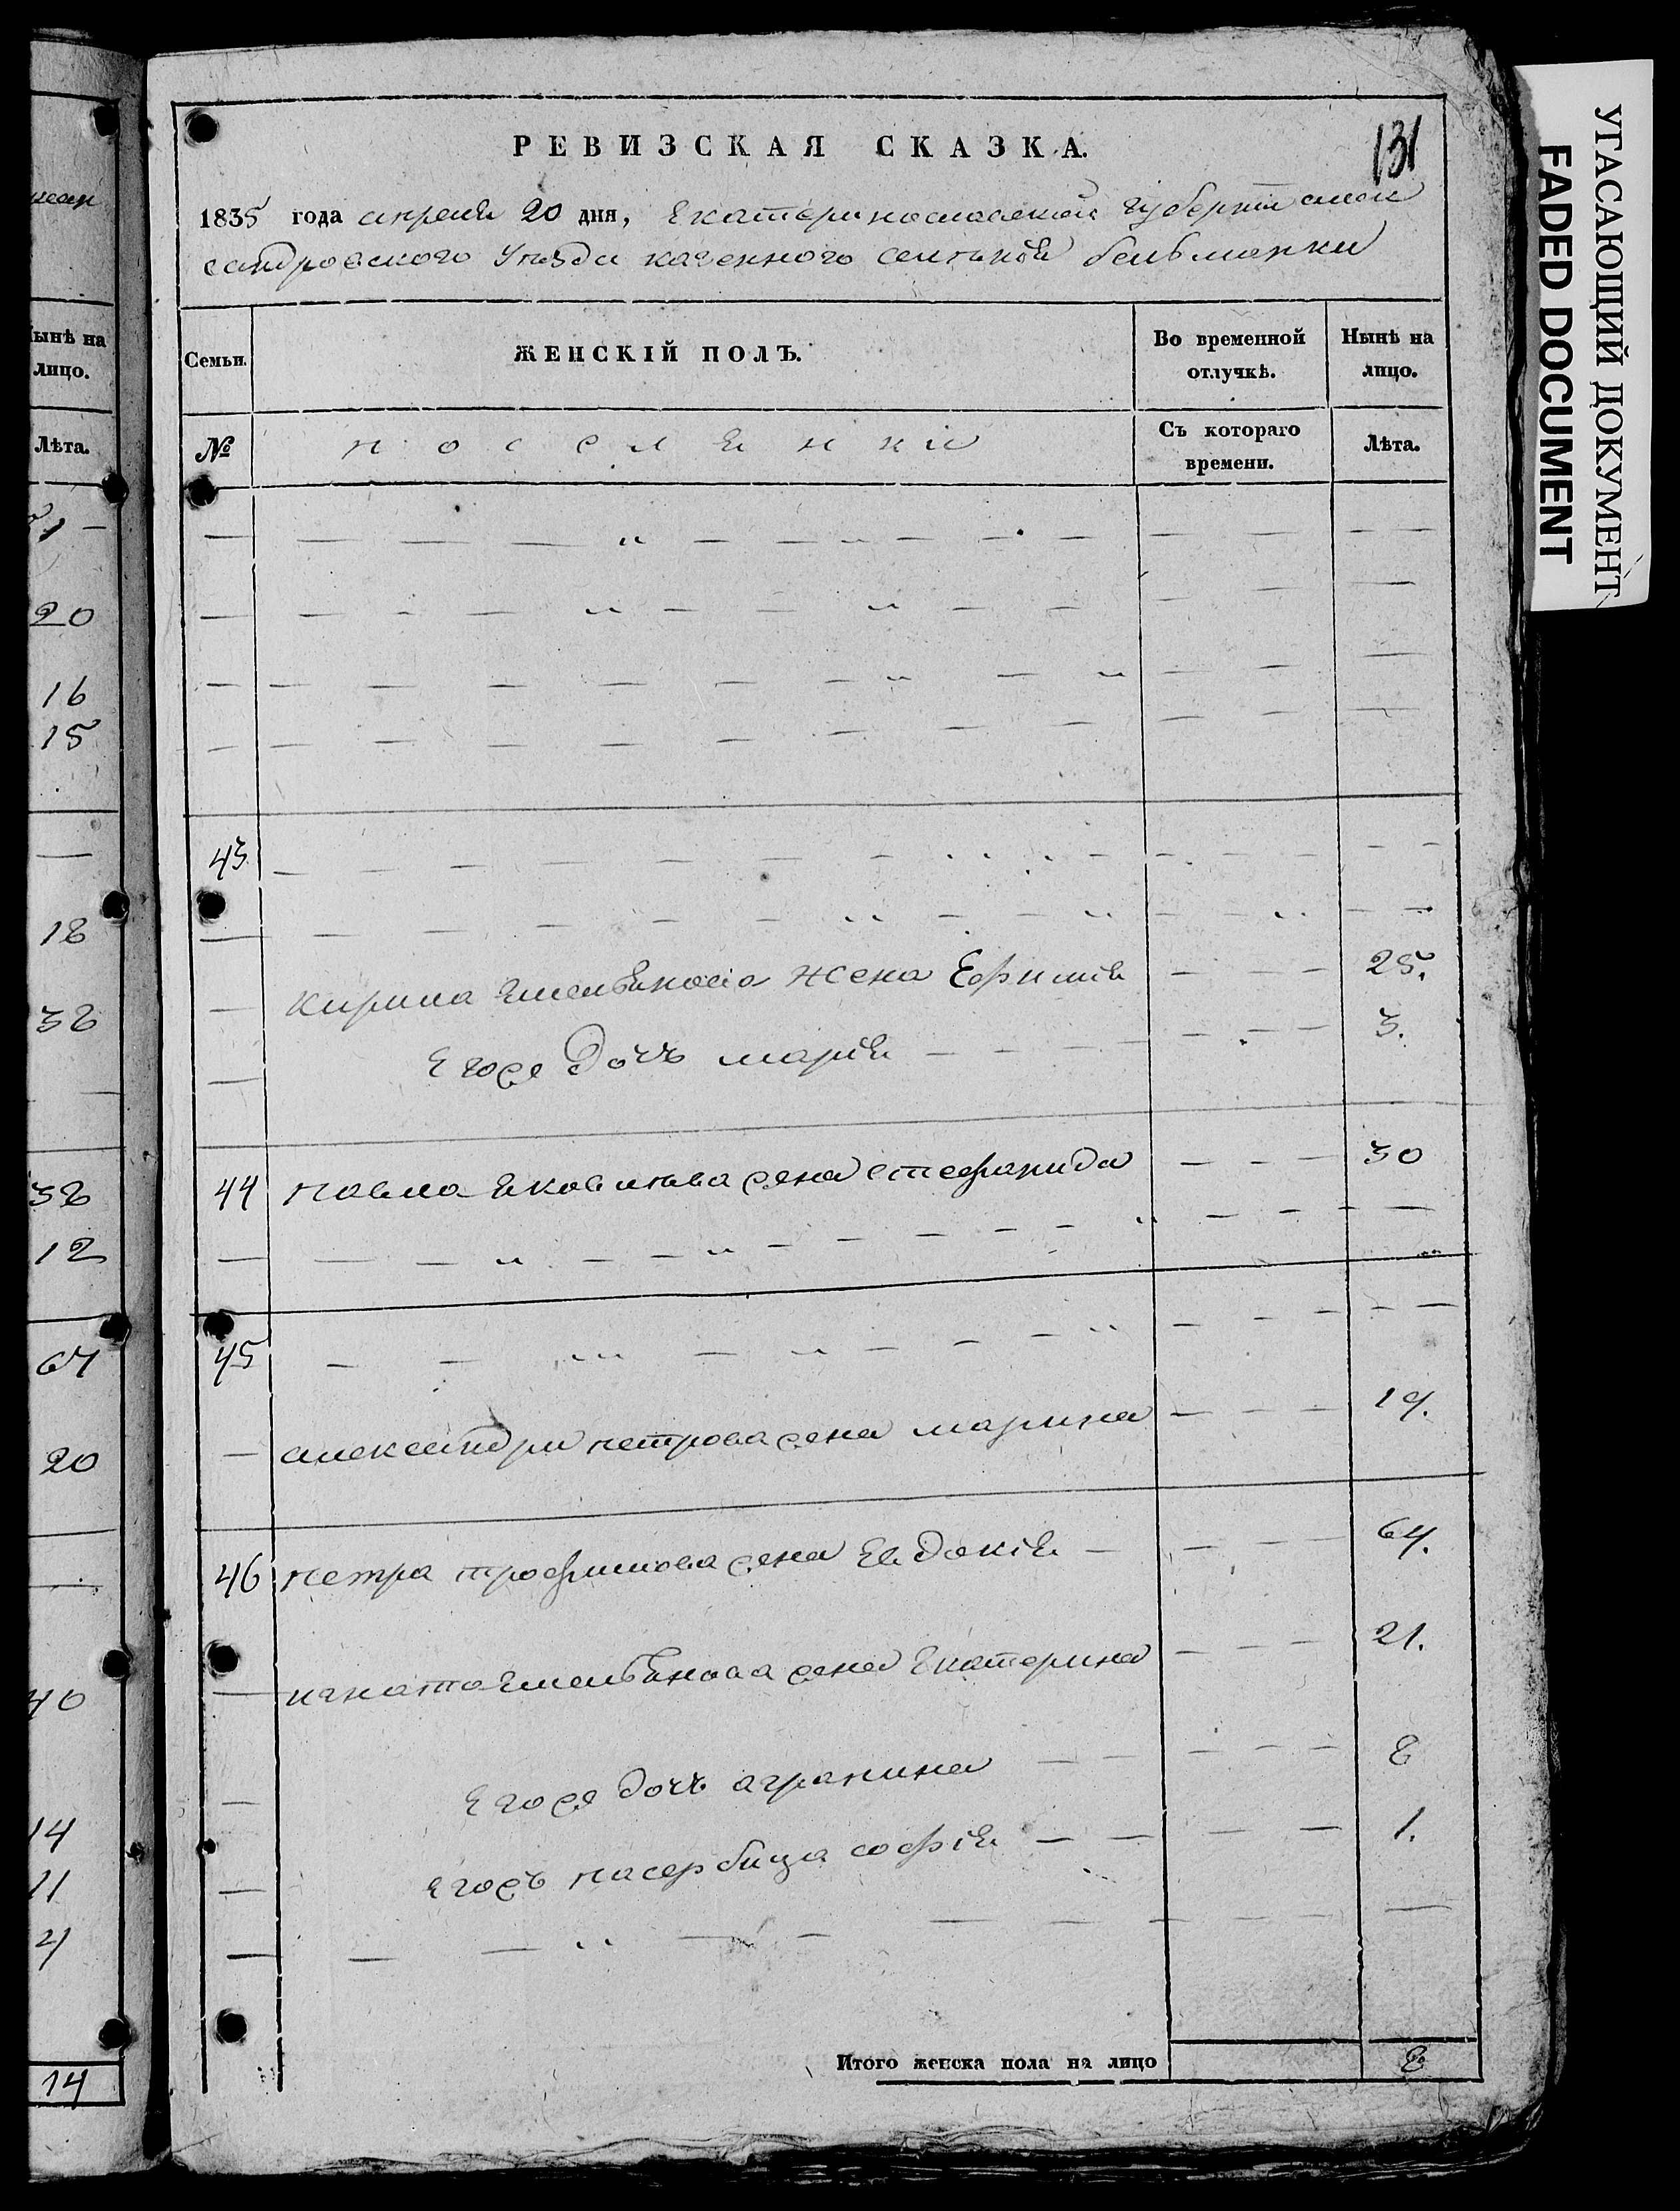 УГАСАЮЩИЙ ДОКУМЕНТ
FADED DOCUMENT
131
РЕВИЗСКАЯ СКАЗКА.
1835 года апреля 20 дня, Екатеринославской Губернии алек
сандровского Уезда казенного селения бельманки
Семьи.
ЖЕНСКІЙ ПОЛЪ.
Во временной отлучкѣ.
Нынѣ на лицо.
№
поселянки
Съ котораго времени.
Лѣта.
43
кирила Емельянова жена Ефимія 25.
Егоже дочь марія 3.
44 павла яковлева жена стефанида 30
45
александра петрова жена марина 19.
46 петра трофимова жена Евдокія 64.
игната Емельянова жена Екатерина 21.
Егоже дочь агрипина 8
Егожъ пасербица софія 1.
Итого женска пола на лицо 8
нынѣ на
лицо.
Лѣта.
20
16
15
18
38
38
12
64
20
40
14
11
4
14